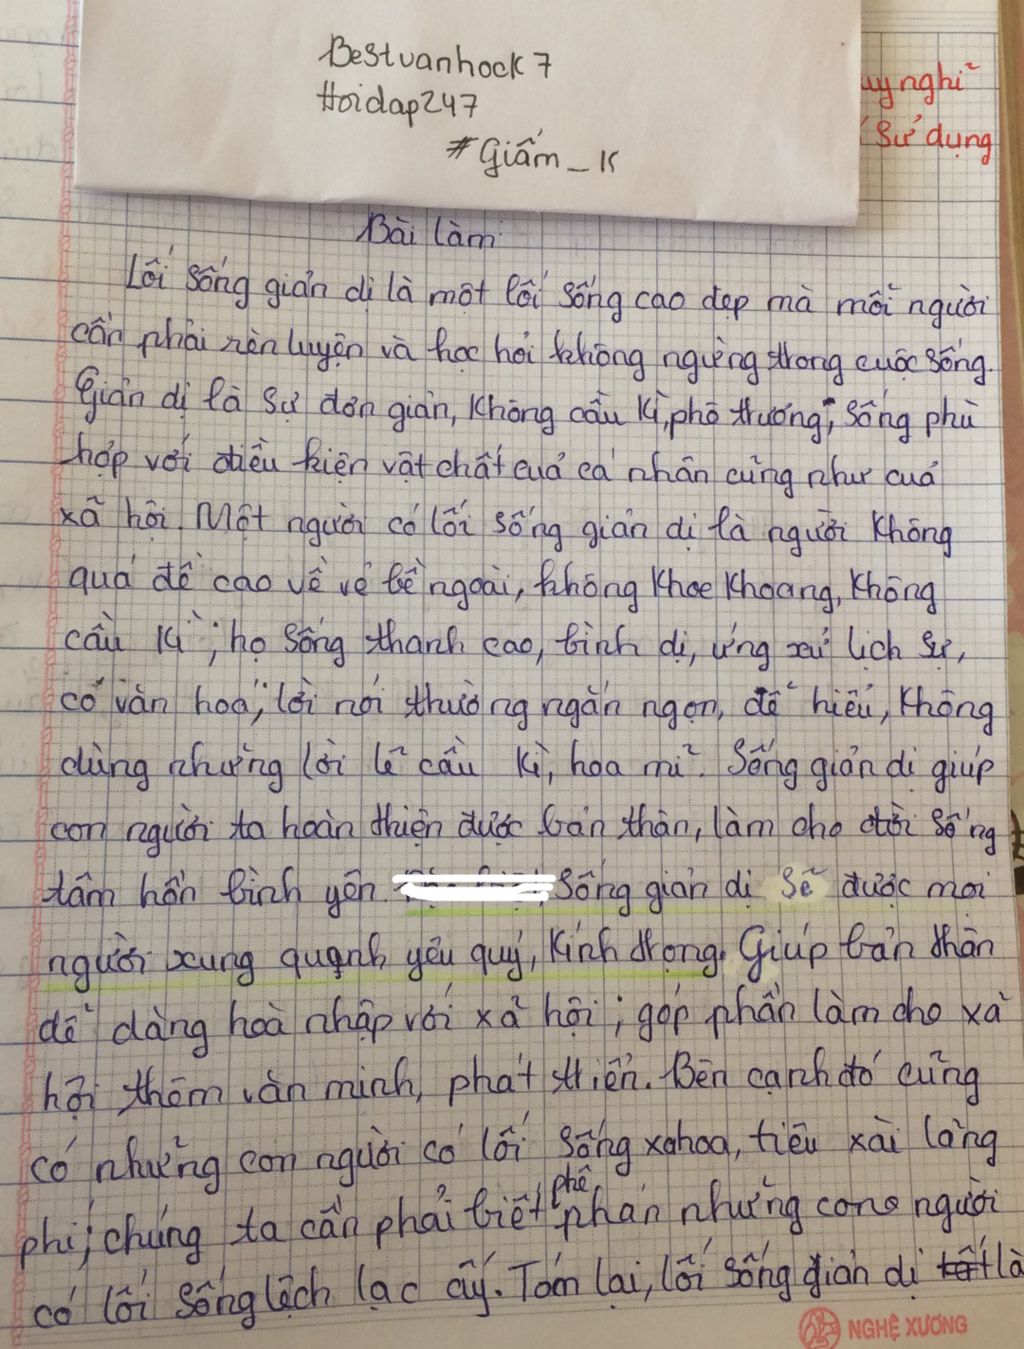 Bestvanhock7
Hoidap247
#Giấm_K
uy nghĩ
sử dụng
Bài làm
Lối sống giản dị là một lối sống cao đẹp mà mỗi người
cần phải rèn luyện và học hỏi không ngừng trong cuộc sống.
Giản dị là sự đơn giản, không cầu kì, phô trương, sống phù
hợp với điều kiện vật chất của cá nhân cũng như của
xã hội. Một người có lối sống giản dị là người không
quá đề cao về vẻ bề ngoài, không khoe khoang, không
cầu kì; họ sống thanh cao, bình dị, ứng xử lịch sự,
có văn hoá, lời nói thường ngắn ngọn, dễ hiểu, không
dùng những lời lẽ cầu kì, hoa mĩ. Sống giản dị giúp
con người ta hoàn thiện được bản thân, làm cho đời sống
tâm hồn bình yên. Sống giản dị sẽ được mọi
người xung quanh yêu quý, kính trọng. Giúp bản thân
dễ dàng hoà nhập với xã hội; góp phần làm cho xã
hội thêm văn minh, phát triển. Bên cạnh đó cũng
có những con người có lối sống xa hoa, tiêu xài lãng
phí; chúng ta cần phải biết phê phán những con người
có lối sống lệch lạc ấy. Tóm lại, lối sống giản dị là
NGHỆ XƯƠNG